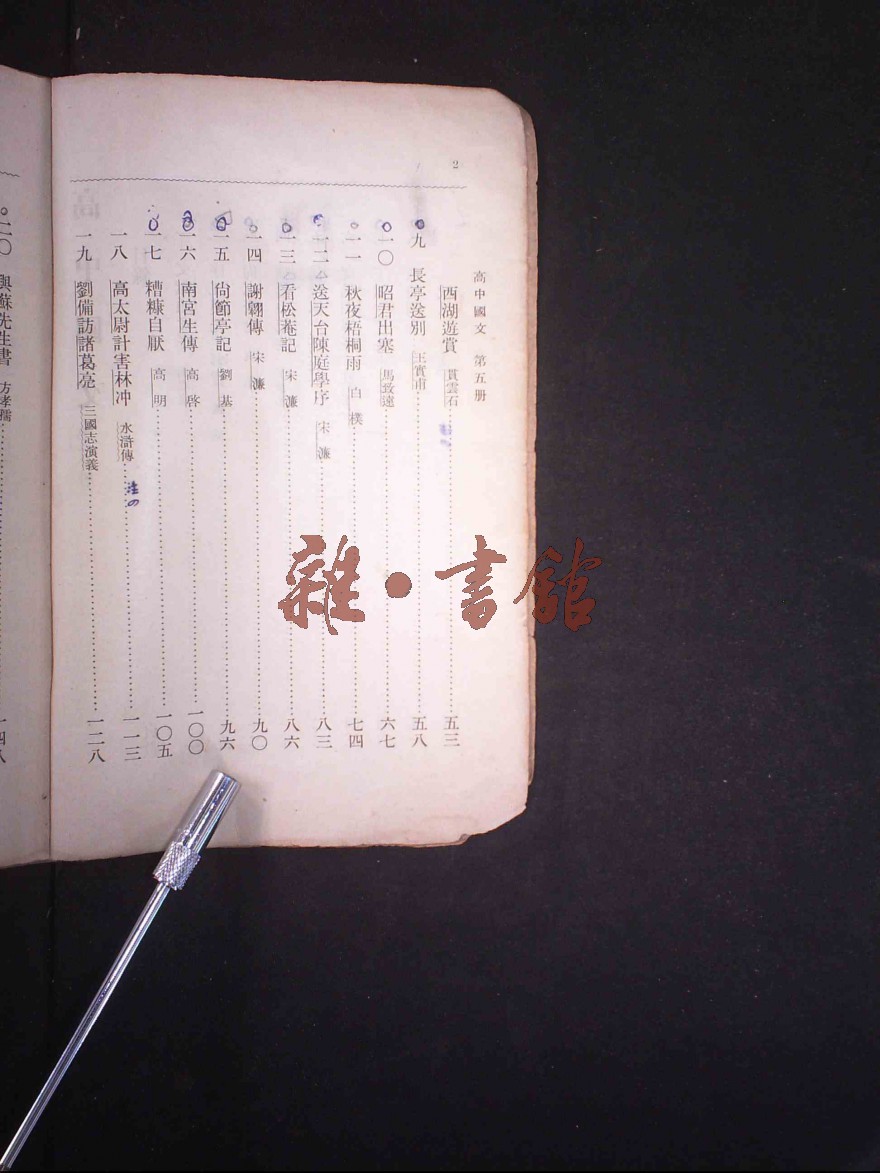 2
高中國文　第五册
西湖遊賞　貫雲石……五三
九　長亭送別　王實甫……五八
一〇　昭君出塞　馬致遠……六七
一一　秋夜梧桐雨　白樸……七四
一二　送天台陳庭學序　宋濂……八三
一三　看松菴記　宋濂……八六
一四　謝翺傳　宋濂……九〇
一五　尙節亭記　劉基……九六
一六　南宮生傳　高啓……一〇〇
一七　糟糠自厭　高明……一〇五
一八　高太尉計害林冲　水滸傳……一一三
一九　劉備訪諸葛亮　三國志演義……一二八
二〇　與蘇先生書　方孝孺……一四八
雜·書館